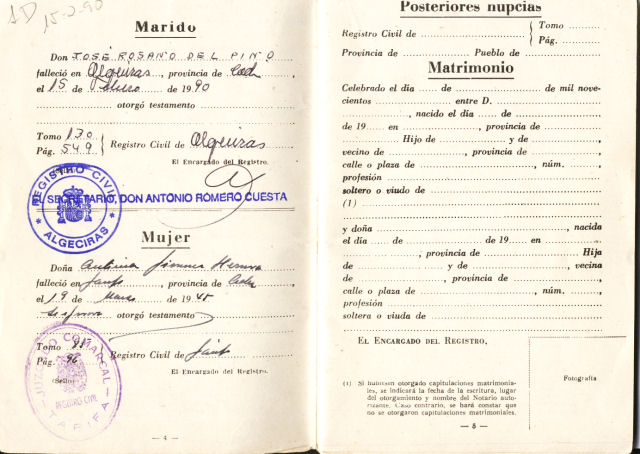 15-2-90
Marido
Don JOSÉ ROSANO DEL PINO
falleció en Algeciras, provincia de Cadiz,
el 15 de Febrero de 1990
otorgó testamento
Tomo 130
Pág. 549
Registro Civil de Algeciras
El Encargado del Registro.
REGISTRO CIVIL
* ALGECIRAS *
EL SECRETARIO, DON ANTONIO ROMERO CUESTA
Mujer
Doña Antonia
falleció en, provincia de
el 19 de Marzo de 19
otorgó testamento
Tomo
Pág. 96
Registro Civil de
El Encargado del Registro.
(Sello)
JUZGADO COMARCAL
REGISTRO CIVIL
TARIFA
— 4 —
Posteriores nupcias
Registro Civil de
Tomo
Pág.
Provincia de Pueblo de
Matrimonio
Celebrado el día de de mil nove-
cientos, entre D.
, nacido el día de
de 19 en, provincia de
Hijo de y de,
vecino de, provincia de,
calle o plaza de, núm.
profesión
soltero o viudo de
(1)
y doña, nacida
el día de de 19 en
, provincia de Hija
de y de, vecina
de, provincia de,
calle o plaza de, núm.,
profesión
soltera o viuda de
EL ENCARGADO DEL REGISTRO,
Fotografía
(1) Si hubiesen otorgado capitulaciones matrimonia-
les, se indicará la fecha de la escritura, lugar
del otorgamiento y nombre del Notario auto-
rizante. Caso contrario, se hará constar que
no se otorgaron capitulaciones matrimoniales.
— 5 —